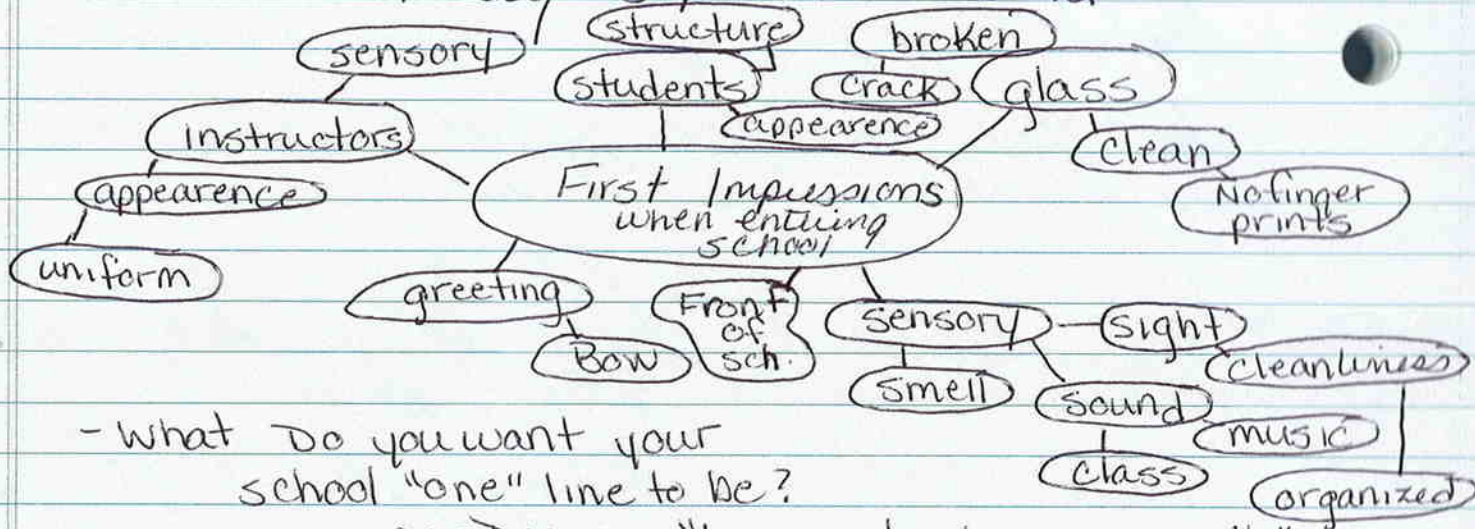 structure
broken
sensory
students
crack
glass
appearence
instructors
clean
appearence
First Impressions
when entering
school
No finger
prints
uniform
greeting
Front
of
sch.
sensory
sight
Bow
cleanliness
smell
sound
music
class
organized
- What Do you want your
school "one" line to be?